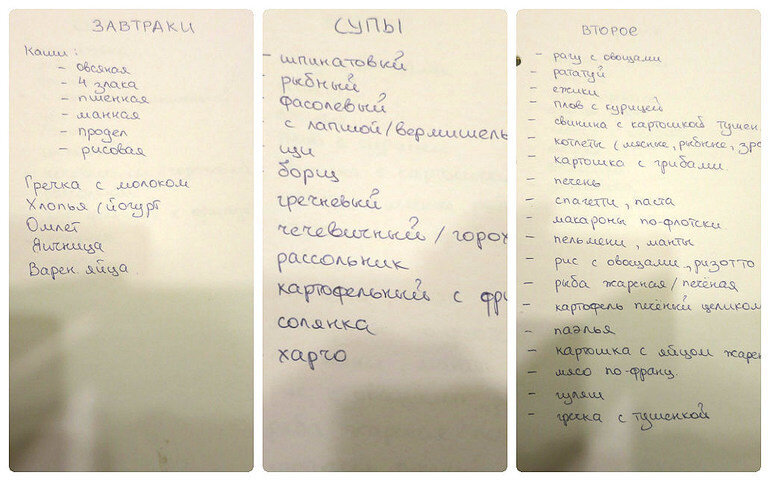 ЗАВТРАКИ
Каши:
- овсяная
- 4 злака
- пшённая
- манная
- продел
- рисовая
Гречка с молоком
Хлопья / йогурт
Омлет
Яичница
Варен яйца
СУПЫ
- шпинатовый
- рыбный
- фасолевый
с лапшой/вермишель
щи
борщ
гречневый
чечевичный / горох
рассольник
картофельный с фри
солянка
харчо
ВТОРОЕ
- рагу с овощами
- рататуй
- ежики
- плов с курицей
- свинина с картошкой тушен
- котлеты (мясные, рыбные, зра
- картошка с грибами
- печень
- спагетти, паста
- макароны по-флотски
- пельмени, манты
- рис с овощами, ризотто
- рыба жареная / печёная
- картофель печёный целиком
- паэлья
- картошка с яйцом жарен
- мясо по-франц.
- гуляш
- гречка с тушенкой